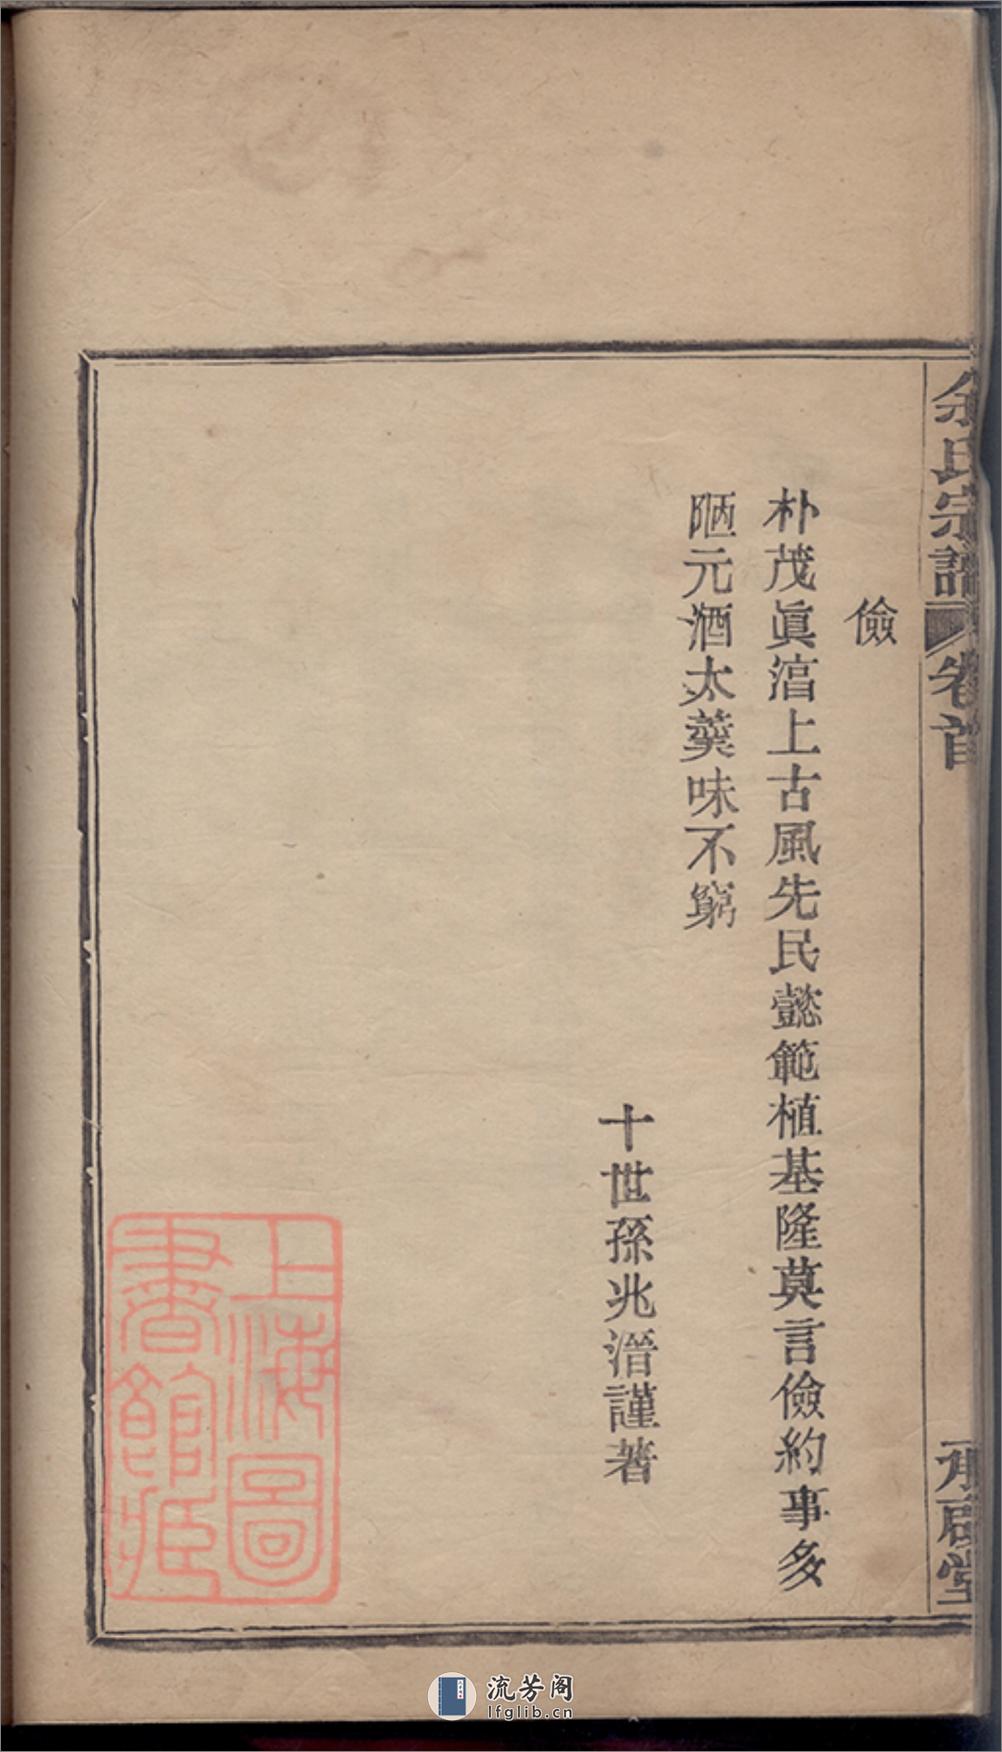 余氏宗譜 卷首
承啟堂
儉
朴茂眞湻上古風先民懿範植基隆莫言儉約事多
陋元酒太羹味不窮
十世孫兆湝謹著
上海圖
書館藏
流芳阁
lfglib.cn